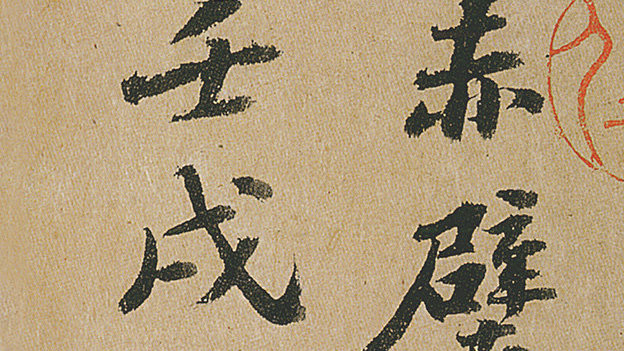 赤壁
壬戌